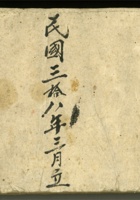 民國三拾八年三月立